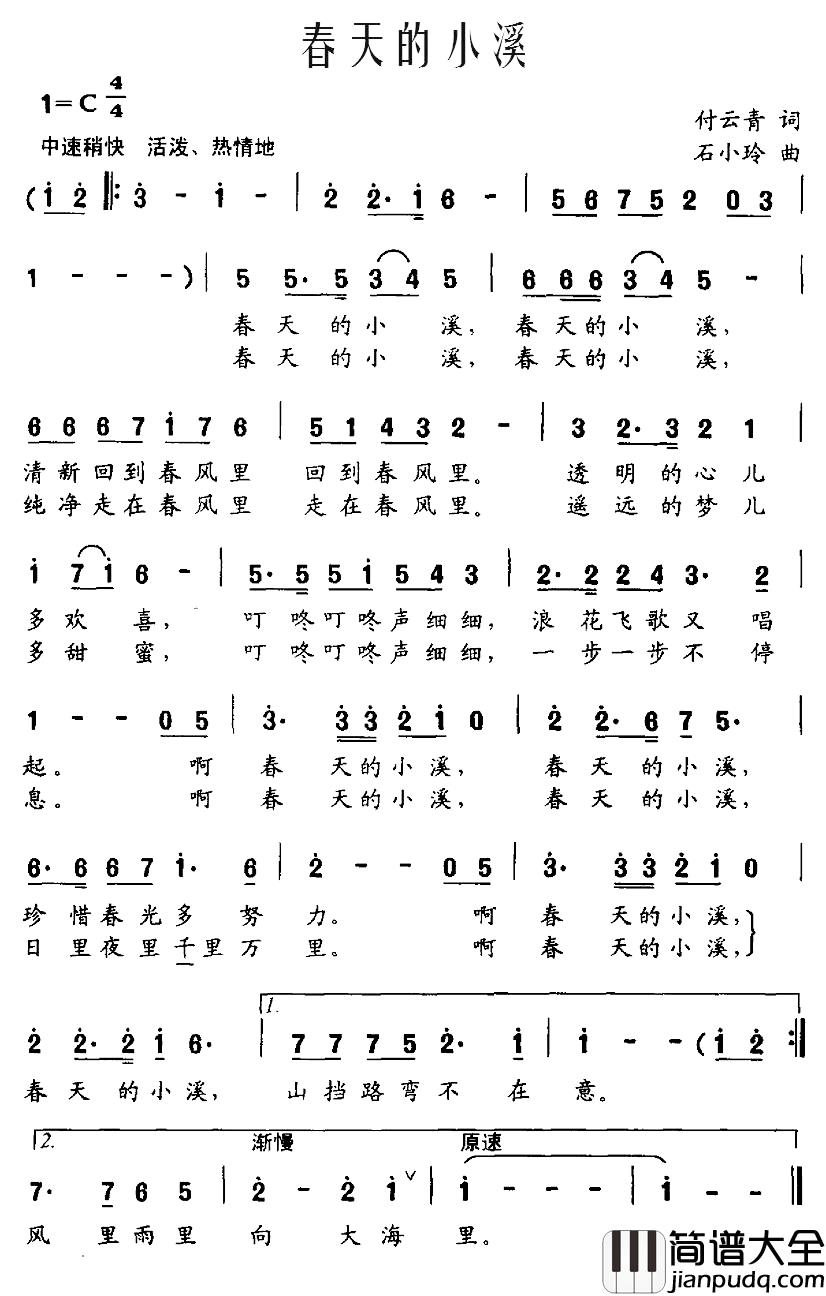 春天的小溪
1=C 4/4
付云青 词
中速稍快 活泼、热情地
石小玲 曲
(i̇ 2̇ ‖: 3̇ - i̇ - | 2̇· i̇ 6 - | 5 6 7 5 2 0 3 |
1 - - - ) | 5 5· 5 3 4 5 | 6 6 6 3 4 5 - |
春 天 的 小 溪, 春 天 的 小 溪,
春 天 的 小 溪, 春 天 的 小 溪,
6 6 6 7 i̇ 7 6 | 5 1 4 3 2 - | 3 2· 3 2 1 |
清 新 回 到 春 风 里 回 到 春 风 里。 透 明 的 心 儿
纯 净 走 在 春 风 里 走 在 春 风 里。 遥 远 的 梦 儿
i̇ 7 i̇ 6 - | 5· 5 5 i̇ 5 4 3 | 2· 2 2 4 3· 2 |
多 欢 喜, 叮 咚 叮 咚 声 细 细, 浪 花 飞 歌 又 唱
多 甜 蜜, 叮 咚 叮 咚 声 细 细, 一 步 一 步 不 停
1 - - 0 5 | 3̇· 3̇ 3̇ 2̇ i̇ 0 | 2̇ 2̇· 6 7 5· |
起。 啊 春 天 的 小 溪, 春 天 的 小 溪,
息。 啊 春 天 的 小 溪, 春 天 的 小 溪,
6· 6 6 7 i̇· 6 | 2̇ - - 0 5 | 3̇· 3̇ 3̇ 2̇ i̇ 0 |
珍 惜 春 光 多 努 力。 啊 春 天 的 小 溪,
日 里 夜 里 千 里 万 里。 啊 春 天 的 小 溪,
1.
2̇ 2̇· 2̇ i̇ 6· | 7 7 7 5 2̇· i̇ | i̇ - - (i̇ 2̇ :‖
春 天 的 小 溪, 山 挡 路 弯 不 在 意。
2. 渐慢 原速
7· 7 6 5 | 2̇ - 2̇ i̇ ∨ | i̇ - - - | i̇ - - - ‖
风 里 雨 里 向 大 海 里。
简谱大全
jianpudq.com